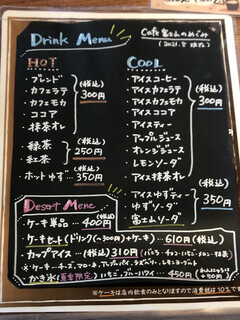 Drink Menu
Cafe 富士山のめぐみ
(2021.8 現在)
HOT
・ブレンド
・カフェラテ
・カフェモカ
・ココア
・抹茶オレ
(税込)
300円
・緑茶
・紅茶
(税込)
250円
・ホットゆず…350円
COOL
・アイスコーヒー
・アイスカフェラテ
・アイスカフェモカ
・アイスココア
・アイスティー
・アップルジュース
・オレンジジュース
・レモンソーダ
・アイス抹茶オレ
(税込)
300円
・アイスゆずティー
・ゆずソーダ
・富士山ソーダ
(税込)
350円
Desart Menu
・ケーキ単品…400円(税込)
・ケーキセット(ドリンク(~300円)+ケーキ)…610円(税込)
・カップアイス…(税込)310円(バニラ・チョコ・メロン・抹茶)
・かき氷(夏季限定)いちご、ブルーハワイ…450円
※ケーキは店内飲食のみとなりますので消費税は10%です